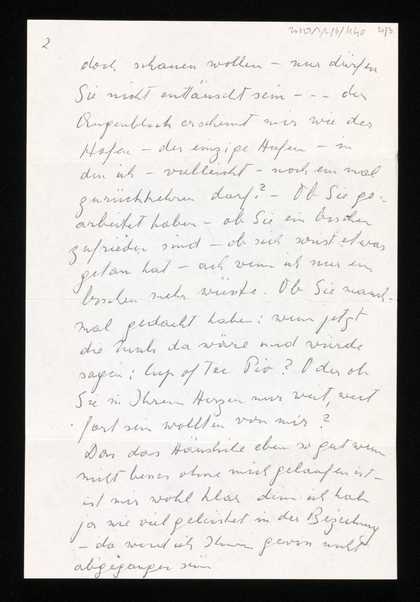 2
doch schauen wollen – nur dürfen
Sie nicht enttäuscht sein - - - der
Augenblick erscheint mir wie der
Hafen – der einzige Hafen – in
den ich – vielleicht – noch einmal
zurückkehren darf? – Ob Sie ge-
arbeitet haben – ob Sie ein bischen
zufrieden sind – ob sich sonst etwas
getan hat – ach wenn ich nur ein
bischen mehr wüsste. Ob Sie manch-
mal gedacht haben: wenn jetzt
die da wäre und würde
sagen: Cup of Tea Pio? Oder ob
Sie in Ihrem Herzen nur weit, weit
fort sein wollten von mir?
Dass das Häusliche eben so gut wenn
nicht besser ohne mich gelaufen ist –
ist mir wohl klar denn ich hab
ja nie viel geleistet in der Beziehung
– da werd ich Ihnen gewiss nicht
abgegangen sein